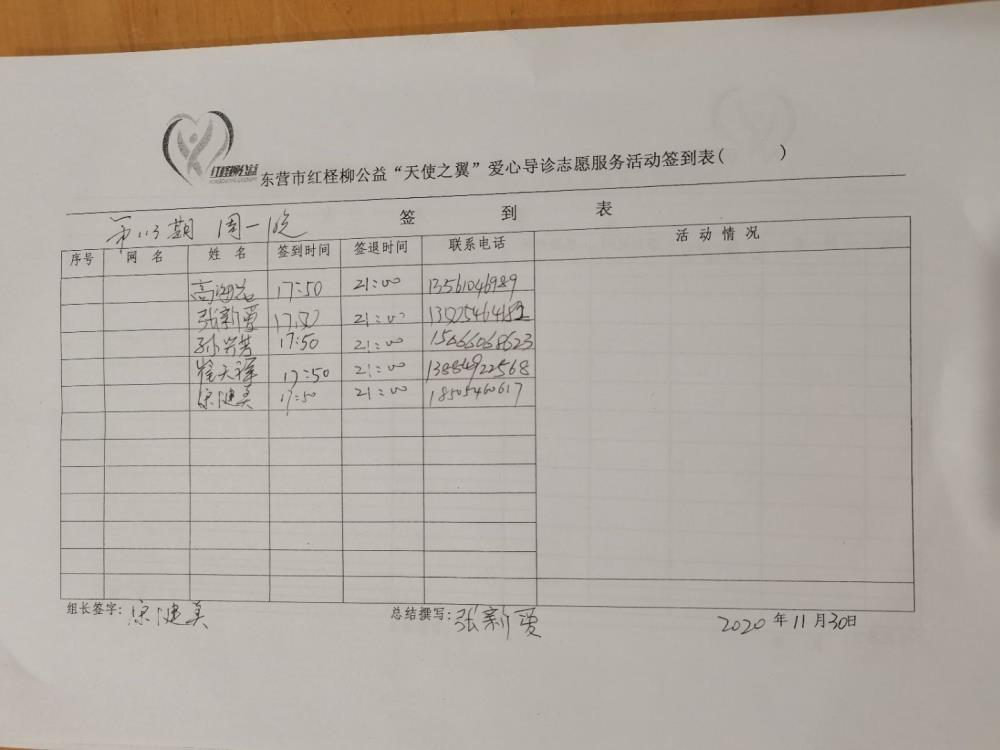 红柽柳公益
东营市红柽柳公益“天使之翼”爱心导诊志愿服务活动签到表( )
第113期 周一晚 签 到 表
序号 网 名 姓 名 签到时间 签退时间 联系电话 活 动 情 况
17:50 21:00 13561046989
张新爱 17:50 21:00
孙兴芳 17:50 21:00 15066068623
崔天祥 17:50 21:00 13884922568
宋健美 17:50 21:00 18505460617
组长签字: 宋健美 总结撰写: 张新爱 2020 年 11 月 30 日